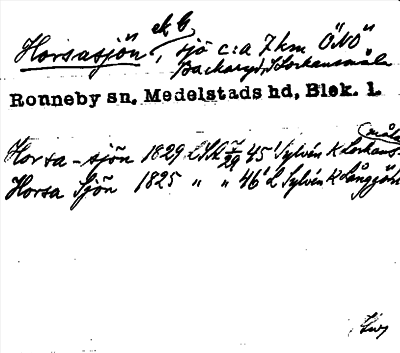 ek G
Horsasjön, sjö c:a 7 km ÖNÖ
Backaryd, K Lorkansmåla
Ronneby sn, Medelstads hd, Blek. l.
Horsa-sjön 1829 LSA 7/29 45' Sylvén K Lorkans-
måla
Horsa Sjön 1825 " " 46' L Sylvén K